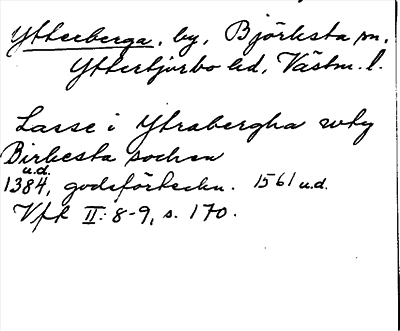 Ytterberga, by, Björksta sn.
Yttertjurbo hd, Västm. l.
Lasse i Ytrabergha uthy
Birkesta sochen
u.d.
1384, godsförteckn. 1561 u.d.
Vft II: 8-9, s. 170.